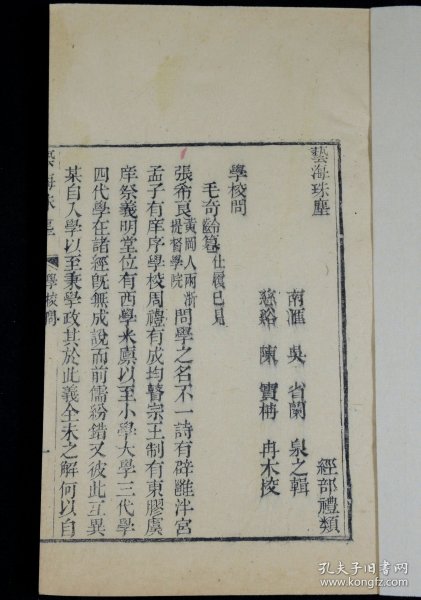 藝海珠塵
經部禮類
南滙 吳省蘭 泉之輯
慈谿 陳 冉木校
學校問
毛奇齡 仕履已見
張希良黃岡人兩浙提督學院問學之名不一詩有辟雝泮宮
孟子有庠序學校周禮有成均瞽宗王制有東膠虞
庠祭義明堂位有西學米廩以至小學大學三代學
四代學在諸經旣無成說而前儒紛錯又彼此互異
某自入學以至秉學政其於此義全未之解何以自
藝海珠塵 學校問 一
孔夫子旧书网
www.kongfz.com